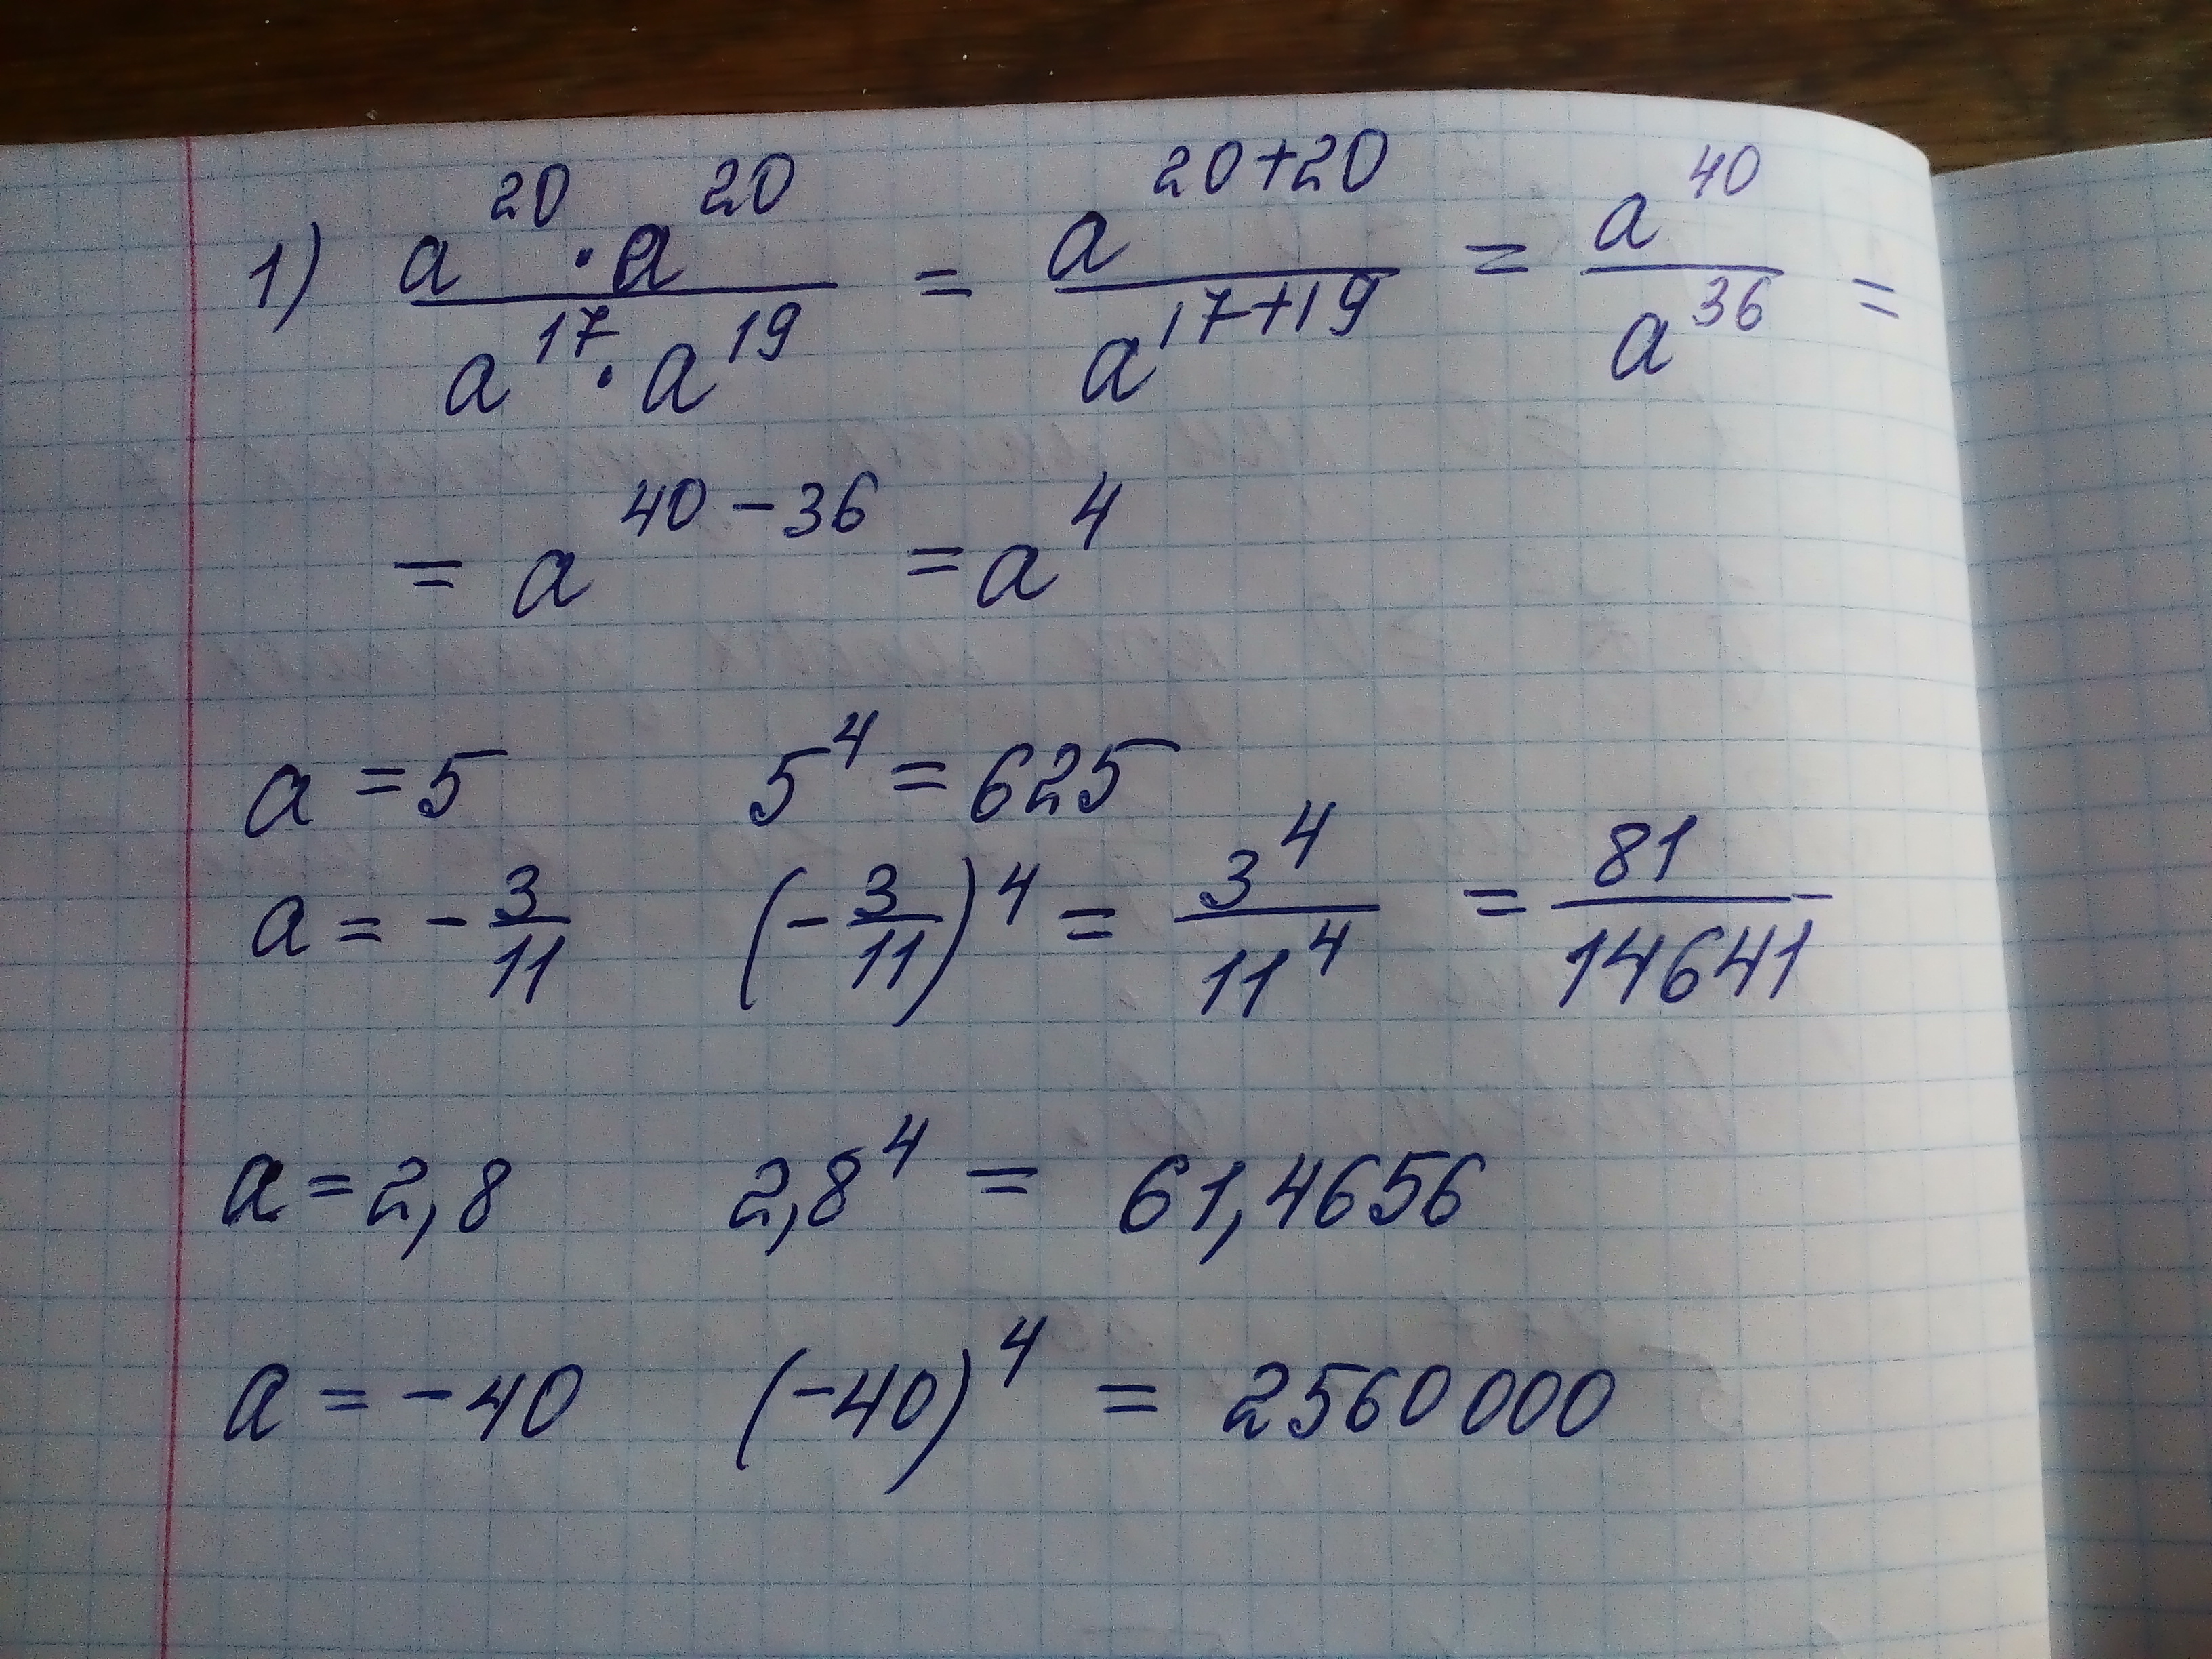 1) a^20 · a^20 / a^17 · a^19 = a^20+20 / a^17+19 = a^40 / a^36 =
= a^40-36 = a^4
a = 5 5^4 = 625
a = -3/11 (-3/11)^4 = 3^4/11^4 = 81/14641
a = 2,8 2,8^4 = 61,4656
a = -40 (-40)^4 = 2560000